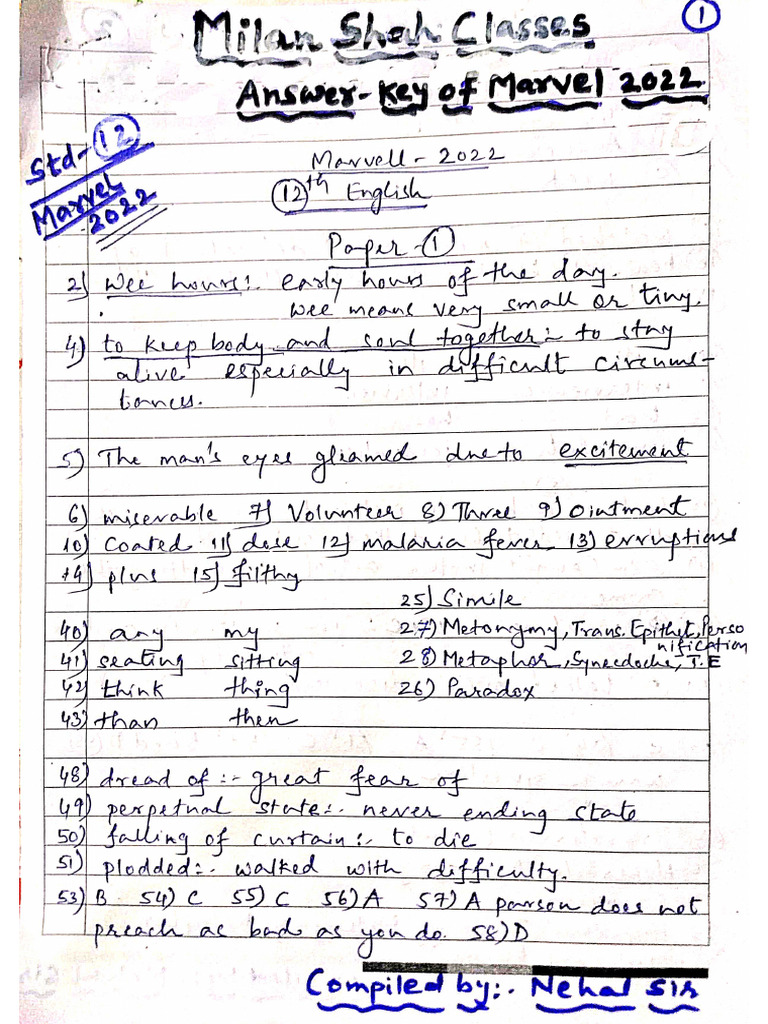 1
Milan Shah Classes
Answer-Key of Marvel 2022
Std-12
Marvel
2022
Marvell - 2022
12th English
Paper-1
2) Wee hours:. early hours of the day.
wee means very small or tiny.
4) to keep body and soul together:- to stay
alive especially in difficult circums-
tances.
5) The man's eyes gliamed due to excitement
6) miserable 7) Volunteer 8) Three 9) Ointment
10) Coated 11) dose 12) malaria fever 13) erruptions
14) plus 15) filthy
25) Simile
40) any my 27) Metonymy, Trans. Epithet, Perso
nification
41) seating sitting 28) Metaphor, Synecdoche, T.E
42) think thing 26) Paradox
43) than then
48) dread of:- great fear of
49) perpetual state:. never ending state
50) falling of curtain:. to die
51) plodded:. walked with difficulty.
53) B 54) C 55) C 56) A 57) A parson does not
preach as bad as you do. 58) D
Compiled by:. Nehal Sir